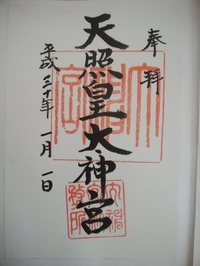 奉拝
天照皇大神宮
平成三十年一月一日